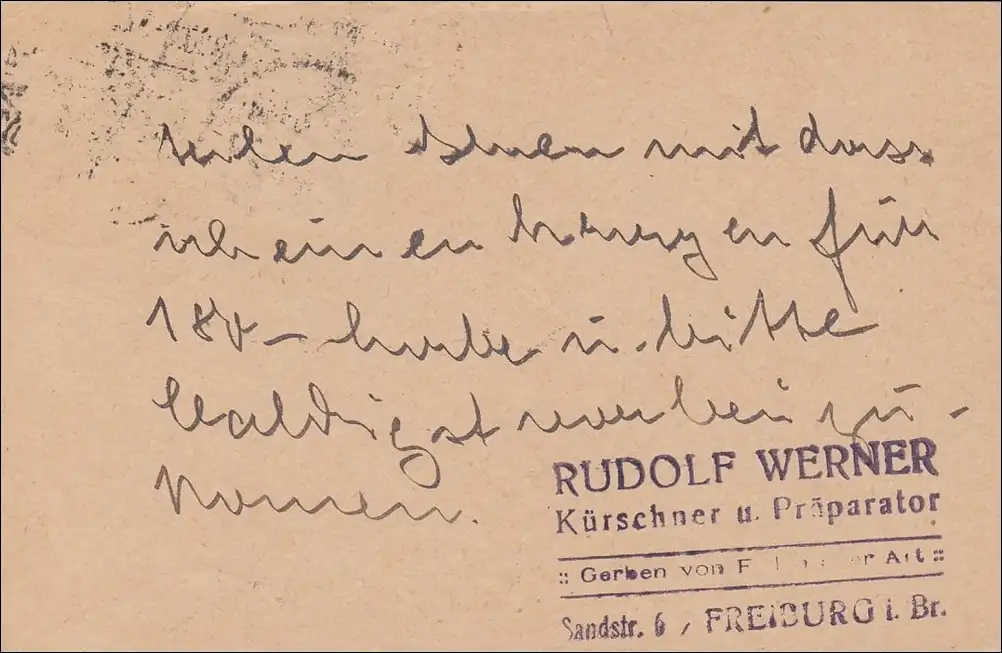 teilen Ihnen mit dass
ich einen Kragen für
180 – habe u. bitte
baldigst vorbei zu-
komen.
RUDOLF WERNER
Kürschner u. Präparator
:: Gerben von Art ::
Sandstr. 6 / FREIBURG i. Br.